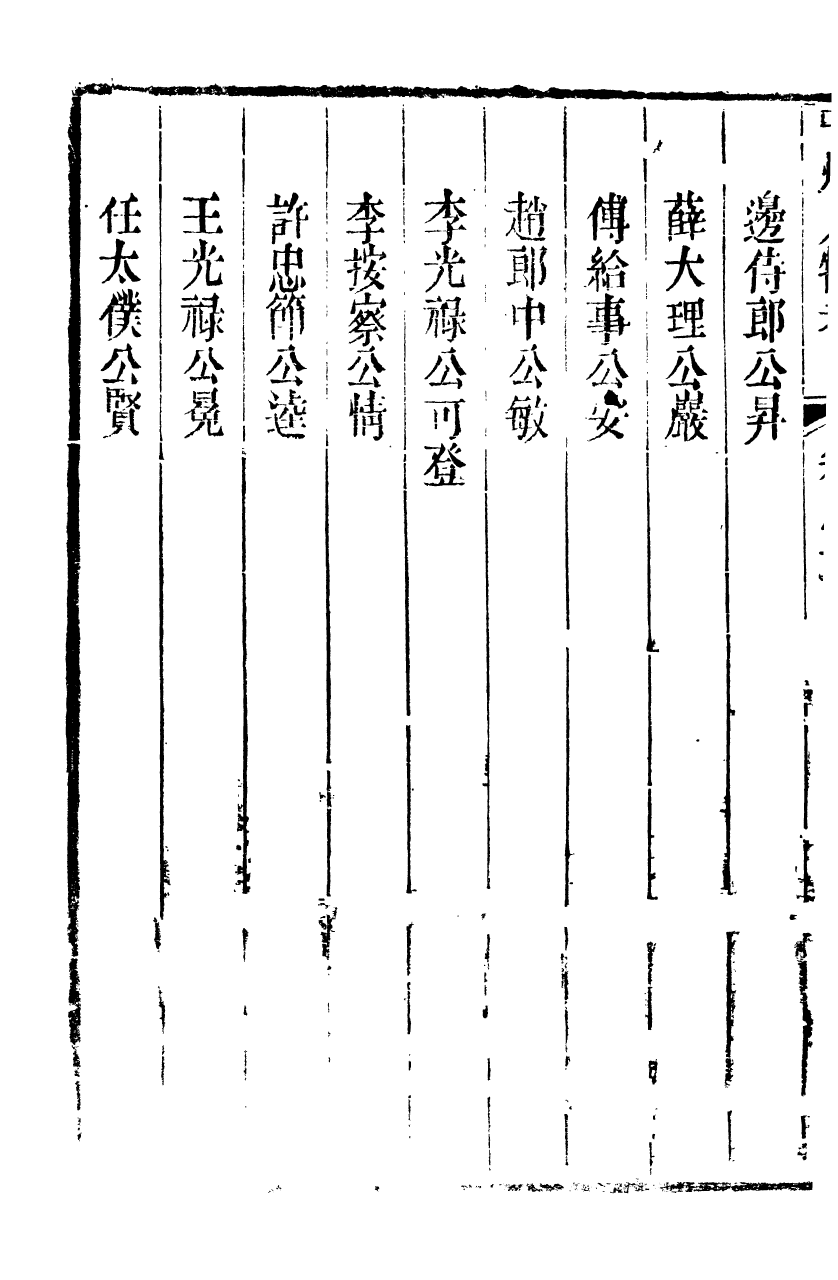 邊侍郎公昇
薛大理公嚴
傅給事公安
趙郎中公敏
李光祿公可登
李按察公情
許忠節公逵
王光祿公晃
任太僕公賢